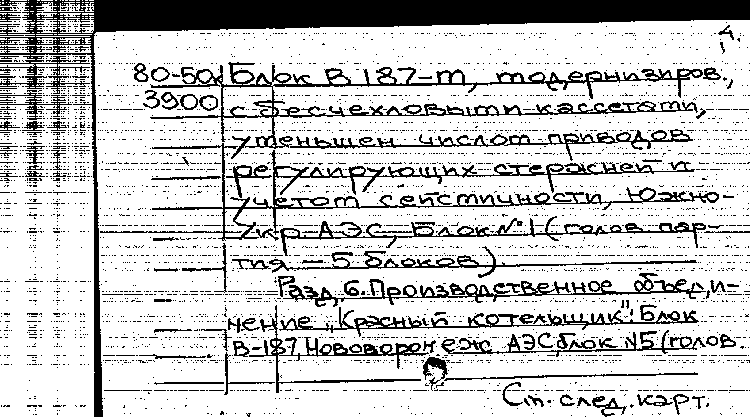 4.
80-50х Блок В 187-т, модернизиров.,
3900 с бесчехловыми кассетами,
уменьшен числом приводов
регулирующих стержней и
учетом сейсмичности, Южно-
Укр. АЭС, Блок №1 (голов. пар-
тия – 5 блоков)
Разд. 6. Производственное объедин-
нение "Красный котельщик": Блок
В-187, Нововоронеж АЭС, блок №5 (голов.
См. след. карт.